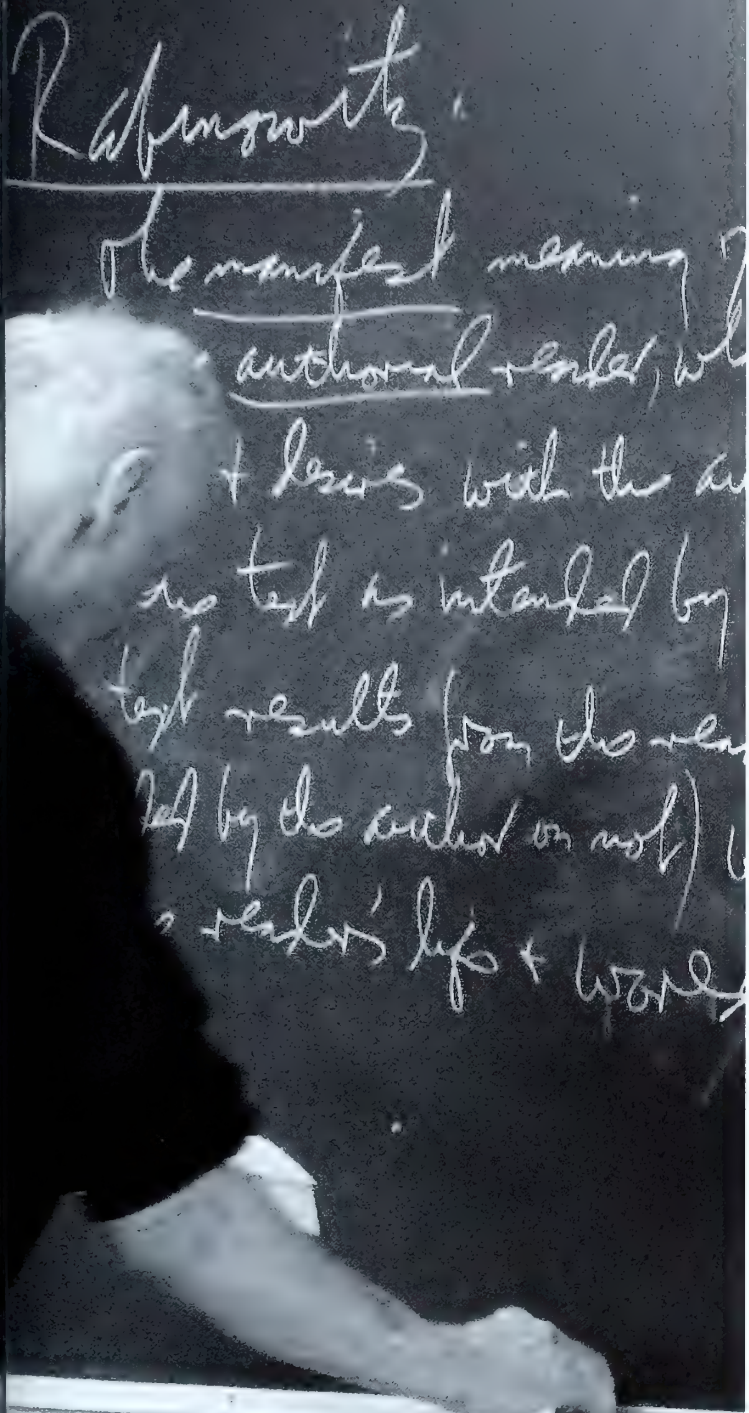 Rabinowitz
The manifest meaning
authorial reader, wh
+ desires with the au
text as intended by
text results from the rea
by the author or not)
reader's life + world